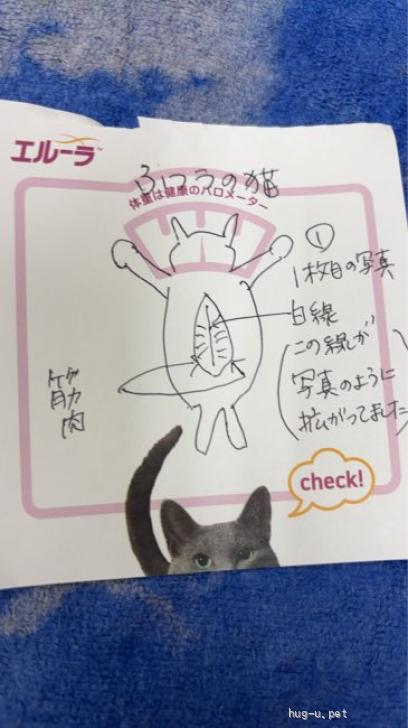 エルーラ™
ふつうの猫
体重は健康のバロメーター
①
1枚目の写真
白線
この線が
写真のように
拡がってました
筋肉
check!
hug-u.pet